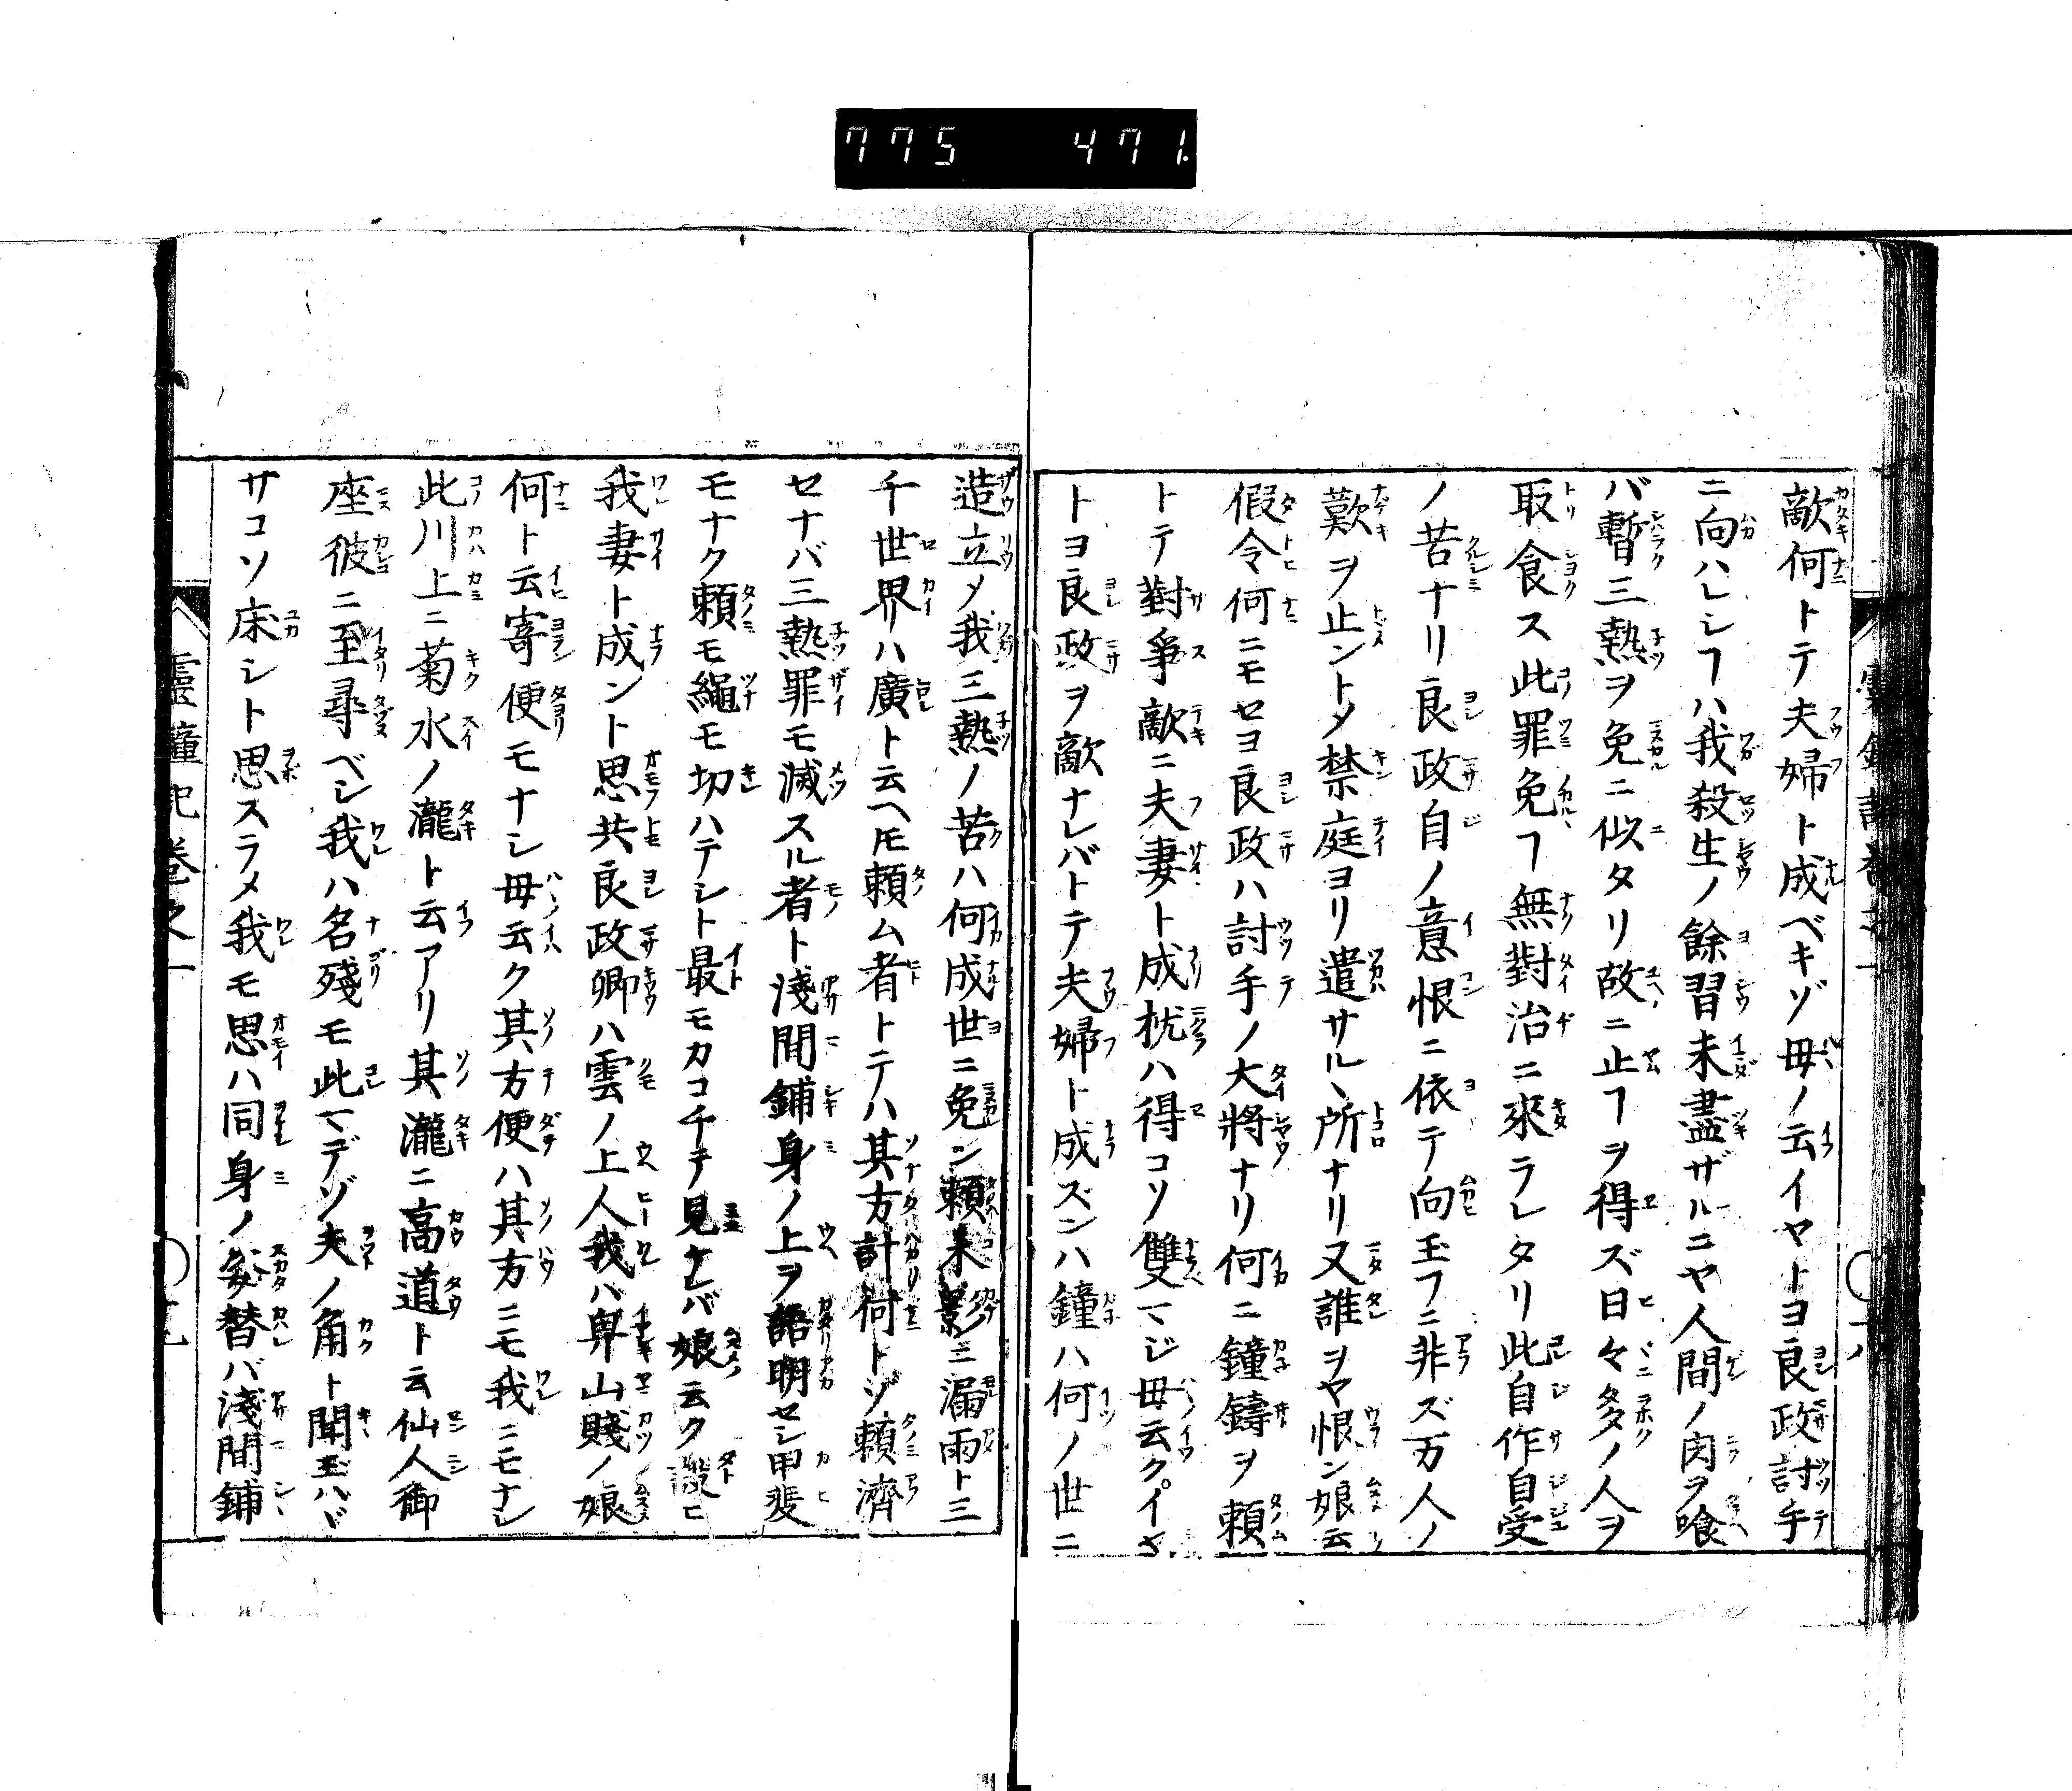 775 471.
敵何トテ夫婦ト成ベキゾ母ノ云イヤトヨ良政討手
ニ向ハレシヿハ我殺生ノ餘習未盡ザルニヤ人間ノ肉ヲ喰
バ暫三熱ヲ免ニ似タリ故ニ止ヿヲ得ズ日々多ノ人ヲ
取食ス此罪免ヿ無對治ニ來ラレタリ此自作自受
ノ苦ナリ良政自ノ意恨ニ依テ向玉フニ非ズ万人ノ
歎ヲ止ントメ禁庭ヨリ遣サルヽ所ナリ又誰ヲヤ恨ン娘云
假令何ニモセヨ良政ハ討手ノ大將ナリ何ニ鐘鑄ヲ頼
トテ對爭敵ニ夫妻ト成枕ハ得コソ雙マジ母云クイヤ
トヨ良政ヲ敵ナレバトテ夫婦ト成ズンハ鐘ハ何ノ世ニ
造立メ我三熱ノ苦ハ何成世ニ免ン頼木影ニ漏雨ト三
千世界ハ廣ト云ヘ𪜈頼ム者トテハ其方計何トゾ頼濟
セナバ三熱罪モ滅スル者ト淺間鋪身ノ上ヲ語明セシ甲斐
モナク頼モ繩モ切ハテシト最モカコチテ見ケレバ娘云ク設ヒ
我妻ト成ント思共良政卿ハ雲ノ上人我ハ卑山賤ノ娘
何ト云寄便モナシ母云ク其方便ハ其方ニモ我ニモナシ
此川上ニ菊水ノ瀧ト云アリ其瀧ニ高道ト云仙人御
座彼ニ至尋ベシ我ハ名殘モ此マデゾ夫ノ角ト聞玉ハヾ
サコソ床シト思スラメ我モ思ハ同身ノ姿替バ淺間鋪
靈鐘記卷之一